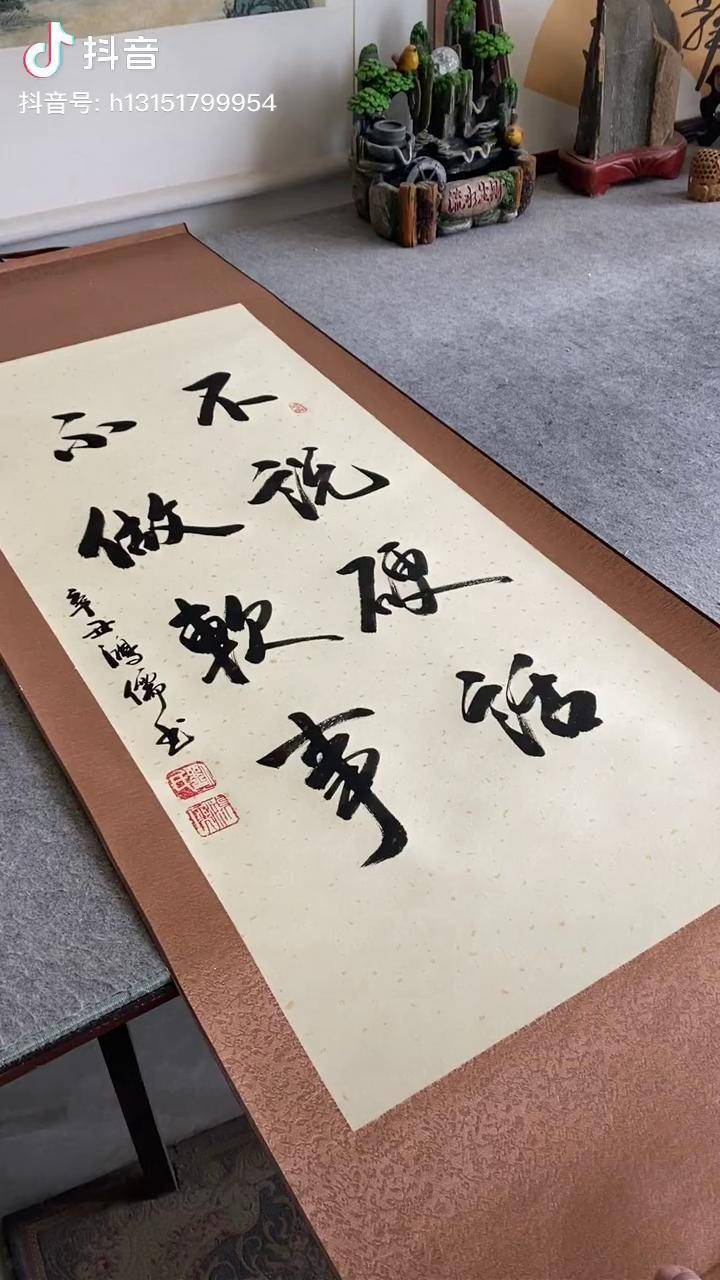 抖音
抖音号: h13151799954
不説硬話
不做軟事
辛丑鴻儒书